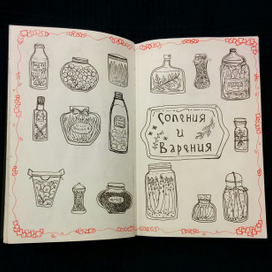 Соления
и
Варения